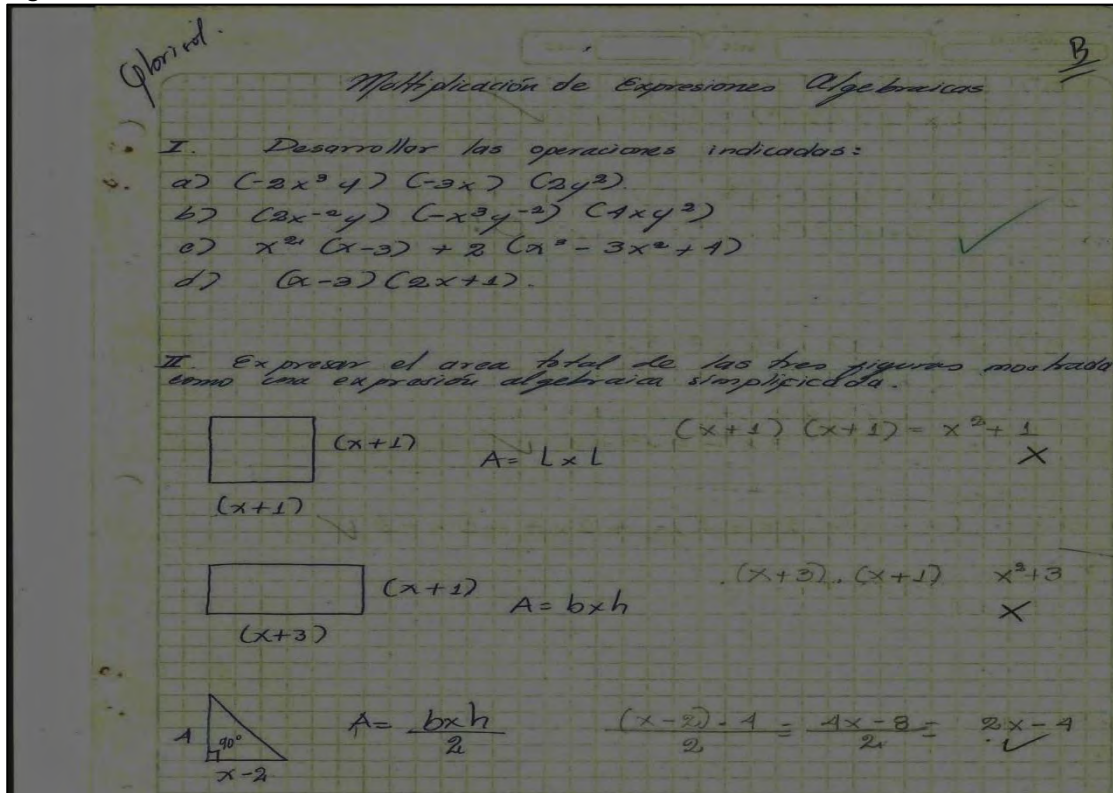 Glorisol.
B
Moltiplicación de Expresiones Algebraicas
I. Desarrollar las operaciones indicadas:
a) (-2x³y) (-3x) (2y²).
b) (2x⁻²y) (-x³y⁻²) (4xy²)
c) x² (x-3) + 2 (x³ - 3x² + 4)
d) (x-3) (2x+1).
II. Expresar el area total de las tres figuras mostrada
como una expresión algebraica simplificada.
(x+1) (x+1) = x² + 1
(x+1)
A = L x L
X
(x+1)
(x+3) . (x+1) x²+3
(x+1)
A = b x h
X
(x+3)
4
90°
x-2
A = bxh / 2
(x-2) · 4 / 2 = 4x-8 / 2 = 2x-4